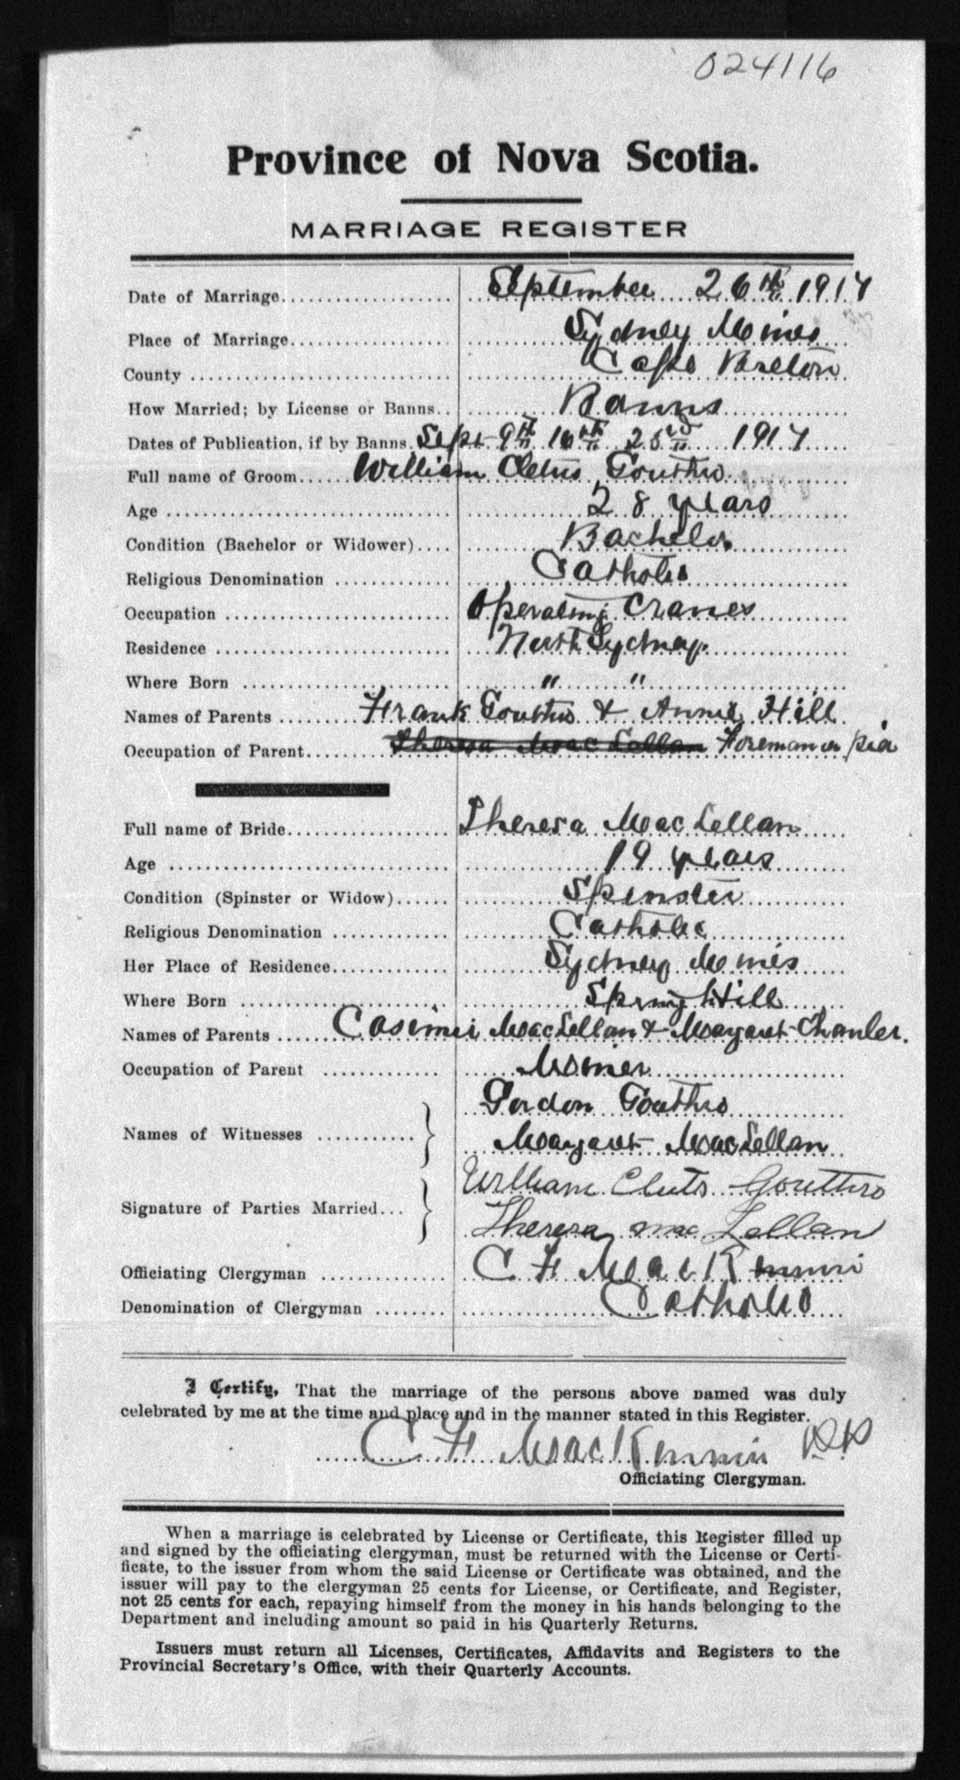 024116
Province of Nova Scotia.
MARRIAGE REGISTER
Date of Marriage.................. September 26th 1917
Place of Marriage.................. Sydney Mines
County .................. Cape Breton
How Married; by License or Banns.. Banns
Dates of Publication, if by Banns. Sept 9th 16th 23rd 1917
Full name of Groom...... William Cletus Gouthro
Age .................. 28 years
Condition (Bachelor or Widower).... Bachelor
Religious Denomination ............ Catholic
Occupation .................. Operating Cranes
Residence .................. North Sydney
Where Born .................. " "
Names of Parents ........ Frank Gouthro & Annie Hill
Occupation of Parent........ Theresa MacLellan Foreman on pier
Full name of Bride.................. Theresa MacLellan
Age .................. 19 years
Condition (Spinster or Widow)...... Spinster
Religious Denomination ............ Catholic
Her Place of Residence............ Sydney Mines
Where Born .................. Spring Hill
Names of Parents ...... Casimir MacLellan & Margaret
Occupation of Parent ............ Miner
Gordon Gouthro
Names of Witnesses ...........
Margaret MacLellan
William Gouthro
Signature of Parties Married...
Theresa Mac Lellan
Officiating Clergyman ............ C F MacKinnon
Denomination of Clergyman ........ Catholic
I Certify, That the marriage of the persons above named was duly
celebrated by me at the time and place and in the manner stated in this Register.
C F MacKinnon P.P.
Officiating Clergyman.
When a marriage is celebrated by License or Certificate, this Register filled up
and signed by the officiating clergyman, must be returned with the License or Certi-
ficate, to the issuer from whom the said License or Certificate was obtained, and the
issuer will pay to the clergyman 25 cents for License, or Certificate, and Register,
not 25 cents for each, repaying himself from the money in his hands belonging to the
Department and including amount so paid in his Quarterly Returns.
Issuers must return all Licenses, Certificates, Affidavits and Registers to the
Provincial Secretary's Office, with their Quarterly Accounts.